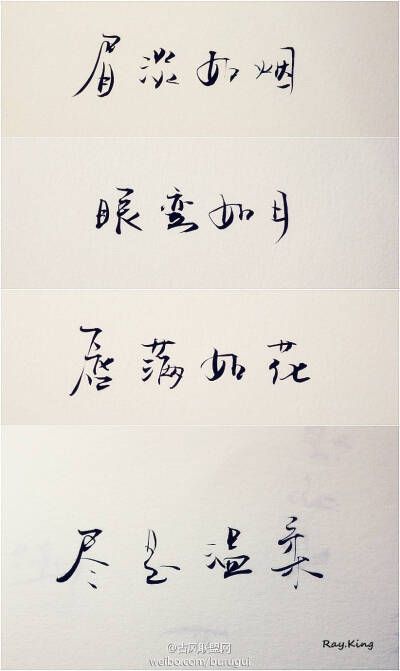 眉淡如烟
眼弯如月
唇满如花
尽是温柔
Ray.King
@古风联盟网
weibo.com/burugui